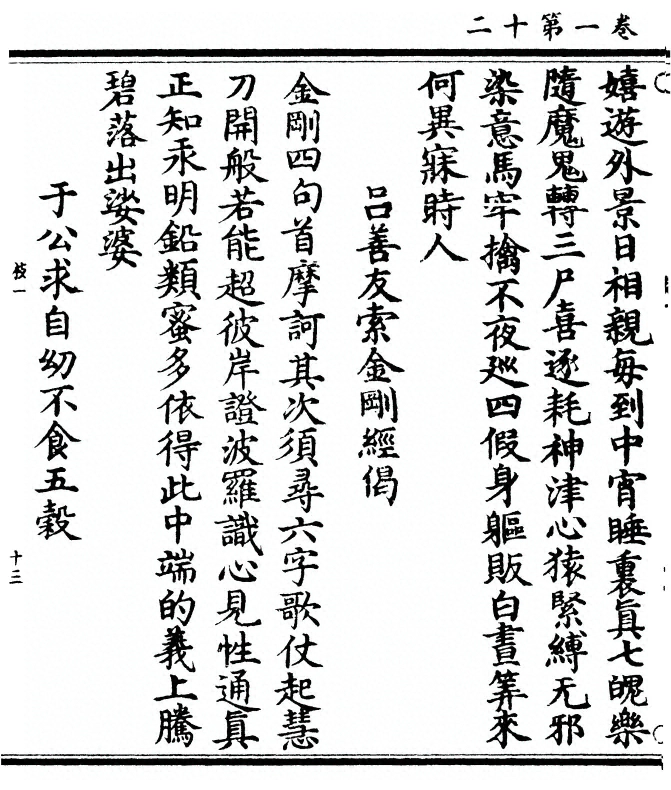 卷一第十二
嬉遊外景日相親每到中宵睡裏眞七魄樂
隨魔鬼轉三尸喜逐耗神津心猿緊縛无邪
染意馬牢擒不夜廵四假身軀販白晝筭來
何異寐時人
呂善友索金剛經偈
金剛四句首摩訶其次須尋六字歌仗起慧
刀開般若能超彼岸證波羅識心見性通眞
正知汞明鉛類蜜多依得此中端的義上騰
碧落出娑婆
于公求自幼不食五穀
枝一
十三